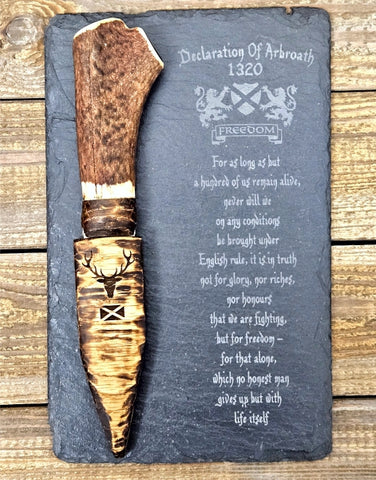 Declaration Of Arbroath
1320
FREEDOM
For as long as but
a hundred of us remain alive,
never will we
on any conditions
be brought under
English rule, it is in truth
not for glory, nor riches,
nor honours
that we are fighting,
but for freedom –
for that alone,
which no honest man
gives up but with
life itself